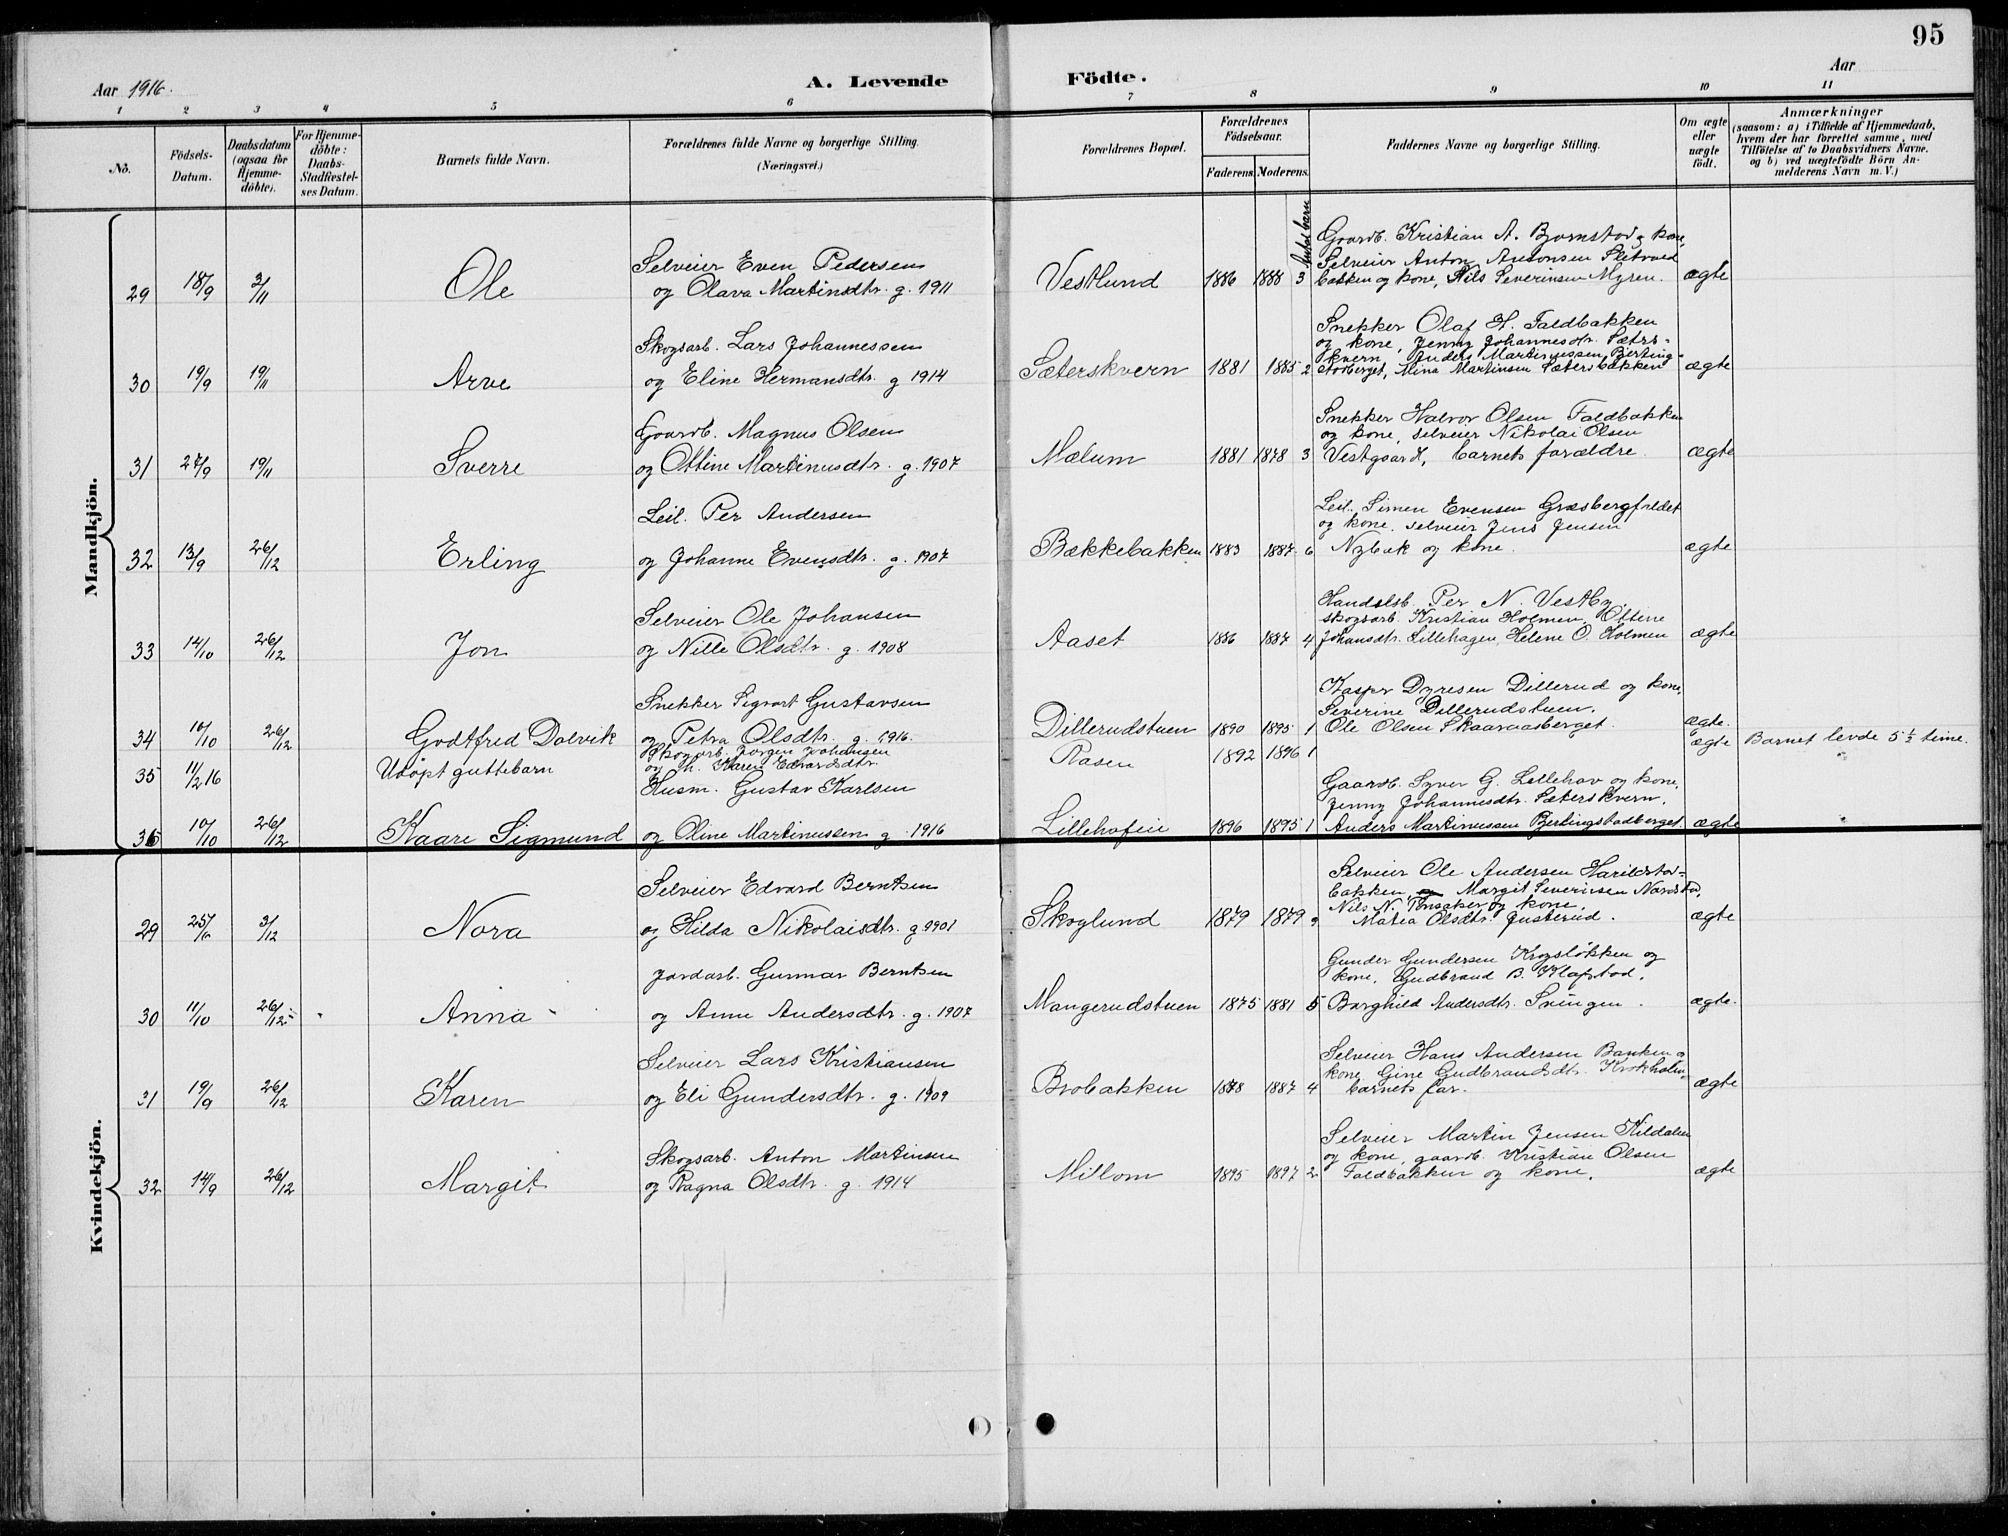 95
Aar 1916.
A. Levende Födte.
Aar
1 2 3 4 5 6 7 8 9 10 11
No.
Födsels-Datum.
Daabsdatum (ogsaa for Hjemmedöbte).
For Hjemmedöbte: Daabs-Stadfæstelses Datum.
Barnets fulde Navn.
Forældrenes fulde Navne og borgerlige Stilling.
(Næringsvei.)
Forældrenes Bopæl.
Forældrenes Födselsaar.
Faderens. Moderens.
Antal barn
Faddernes Navne og borgerlige Stilling.
Om ægte eller uægte födt.
Anmærkninger
(saasom: a) i Tilfælde af Hjemmedaab,
hvem der har forrettet samme, med
Tilföielse af to Daabsvidners Navne.
og b) ved uægtefödte Börn An-
melderens Navn m. V.)
Mandkjön.
29 18/9 3/11 Ole
Selveier Even Pedersen
og Olava Martinsdtr. g. 1911
Vestlund 1886 1888 3
Gaardb. Kristian A. Bjørnstad og kone,
Selveier Anton Antonsen Sletved
bakken og kone, Nils Severinsen Myren.
ægte
30 19/9 19/11 Arve
Skogsarb. Lars Johannessen
og Eline Hermansdtr. g 1914
Sæterskvern 1881 1885 2
Snekker Olaf H. Faldbakken
og kone, Jenny Johannesdtr. Sæters-
kvern, Anders Martinussen Bjerting-
stadberget, Mina Martinsen Sætersbakken
ægte
31 27/9 19/11 Sverre
Gaardb. Magnus Olsen
og Ottine Martinusdtr. g. 1907
Mælum 1881 1878 3
Snekker Halvor Olsen Faldbakken
og kone, selveier Nikolai Olsen
Vestgaard, barnets forældre.
ægte
32 13/9 26/12 Erling
Leil. Per Andersen
og Johanne Evensdtr. g. 1907
Bækkebakken 1883 1887 6
Leil. Simen Evensen Græsbergfeldet
og kone, selveier Jens Jensen
Nybak og kone.
ægte
33 14/10 26/12 Jon
Selveier Ole Johansen
og Nille Olsdtr. g. 1908
Aaset 1886 1887 4
Handelsb. Per N. Vestby
skogsarb. Kristian Holmen, Ottine
Johansdtr. Lillehagen, Helene O. Holmen
ægte
34 10/10 26/12 Godtfred Dolvik
Snekker Sigvart Gustavsen
og Petra Olsdtr. g. 1916.
Dillerudstuen 1890 1895 1
Kasper Dyresen Dillerud og kone,
Severine Dillerudstuen,
Ole Olsen Skaaraasberget.
ægte.
35 11/2 16 Udöpt guttebarn
Skogsarb. Jørgen Johansen
og h. Karen Edvardsdtr.
Rasen 1892 1896 1
ægte Barnet levde 5 1/2 time.
36 10/10 26/12 Kaare Sigmund
Husm. Gustav Karlsen
og Oline Martinussen g. 1916
Lillehofeie 1896 1895 1
Gaardb. Syver G. Lillehov og kone,
Jenny Johannesdtr. Sæterskvern,
Anders Martinussen Bjerlingstadberget
ægte
Kvindekjön.
29 3/12 Nora
Selveier Edvard Berntsen
og Hilda Nikolaisdtr. g 1901
Skoglund 1879 1879
Selveier Ole Andersen Harildstad-
bakken, Margit Severinsen Nordstad,
Nils N. Tønsaker og kone,
Matea Olsdtr. Justerud.
ægte
30 11/10 26/12 Anna
Jordarb. Gunnar Berntsen
og Anne Andersdtr. g. 1907
Mangerudstuen 1875 1881 5
Gunder Gundersen Krogsløkken og
kone, Gudbrand B. Klafstad,
Borghild Andersdtr. Svingen.
ægte.
31 19/9 26/12 Karen
Selveier Lars Kristiansen
og Eli Gundersdtr. g. 1909
Brobakken 1878 1887 4
Selveier Hans Andersen Banken og
kone, Gine Gudbrandsdtr. Krokholen,
barnets far.
ægte
32 14/9 26/12 Margit
Skogsarb. Anton Martinsen
og Ragna Olsdtr. g. 1914
Millom 1895 1897 2
Selveier Martin Jensen Kildalen
og kone, gaardb. Kristian Olsen
Faldbakken og kone.
ægte